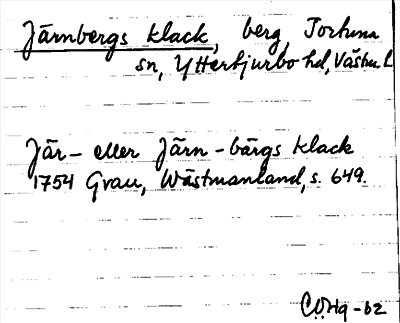 Järnbergs klack, berg Tortuna
sn, Ytterbjurbo hd, Västm. l.
Jär- eller Järn-bärgs klack
1754 Grau, Wästmanland, s. 649.